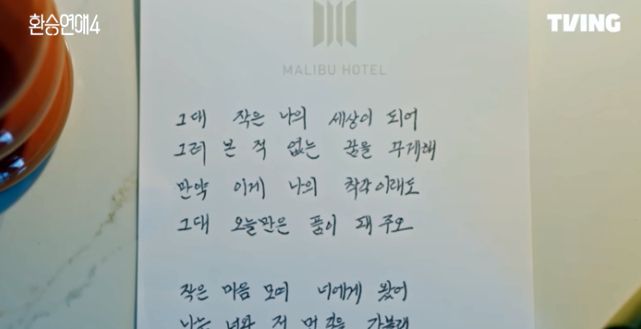 환승연애4
TVING
MALIBU HOTEL
그대 작은 나의 세상이 되어
그려 본 적 없는 꿈을 꾸게해
만약 이게 나의 착각이래도
그대 오늘만은 품이 돼 주오
작은 마음 모여 너에게 봤어
나는 너와 저 먼 길을 가볼래